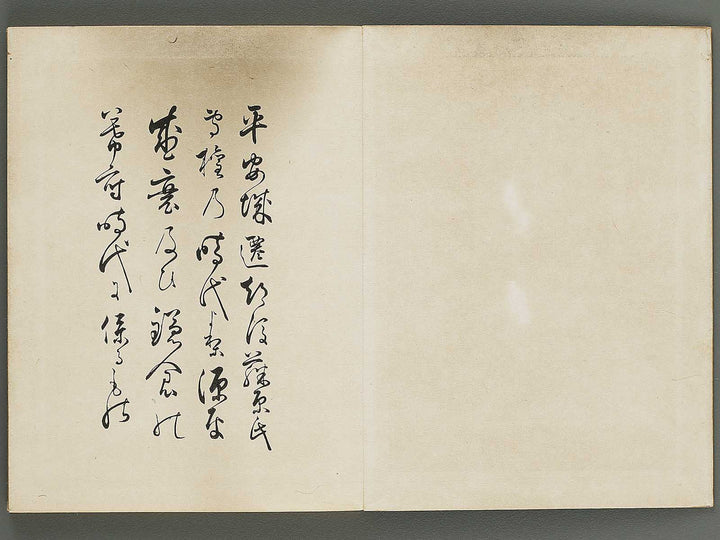 平安城遷都後藤原氏
専権乃時代より源平
盛衰及ひ鎌倉の
幕府時代に係るもの